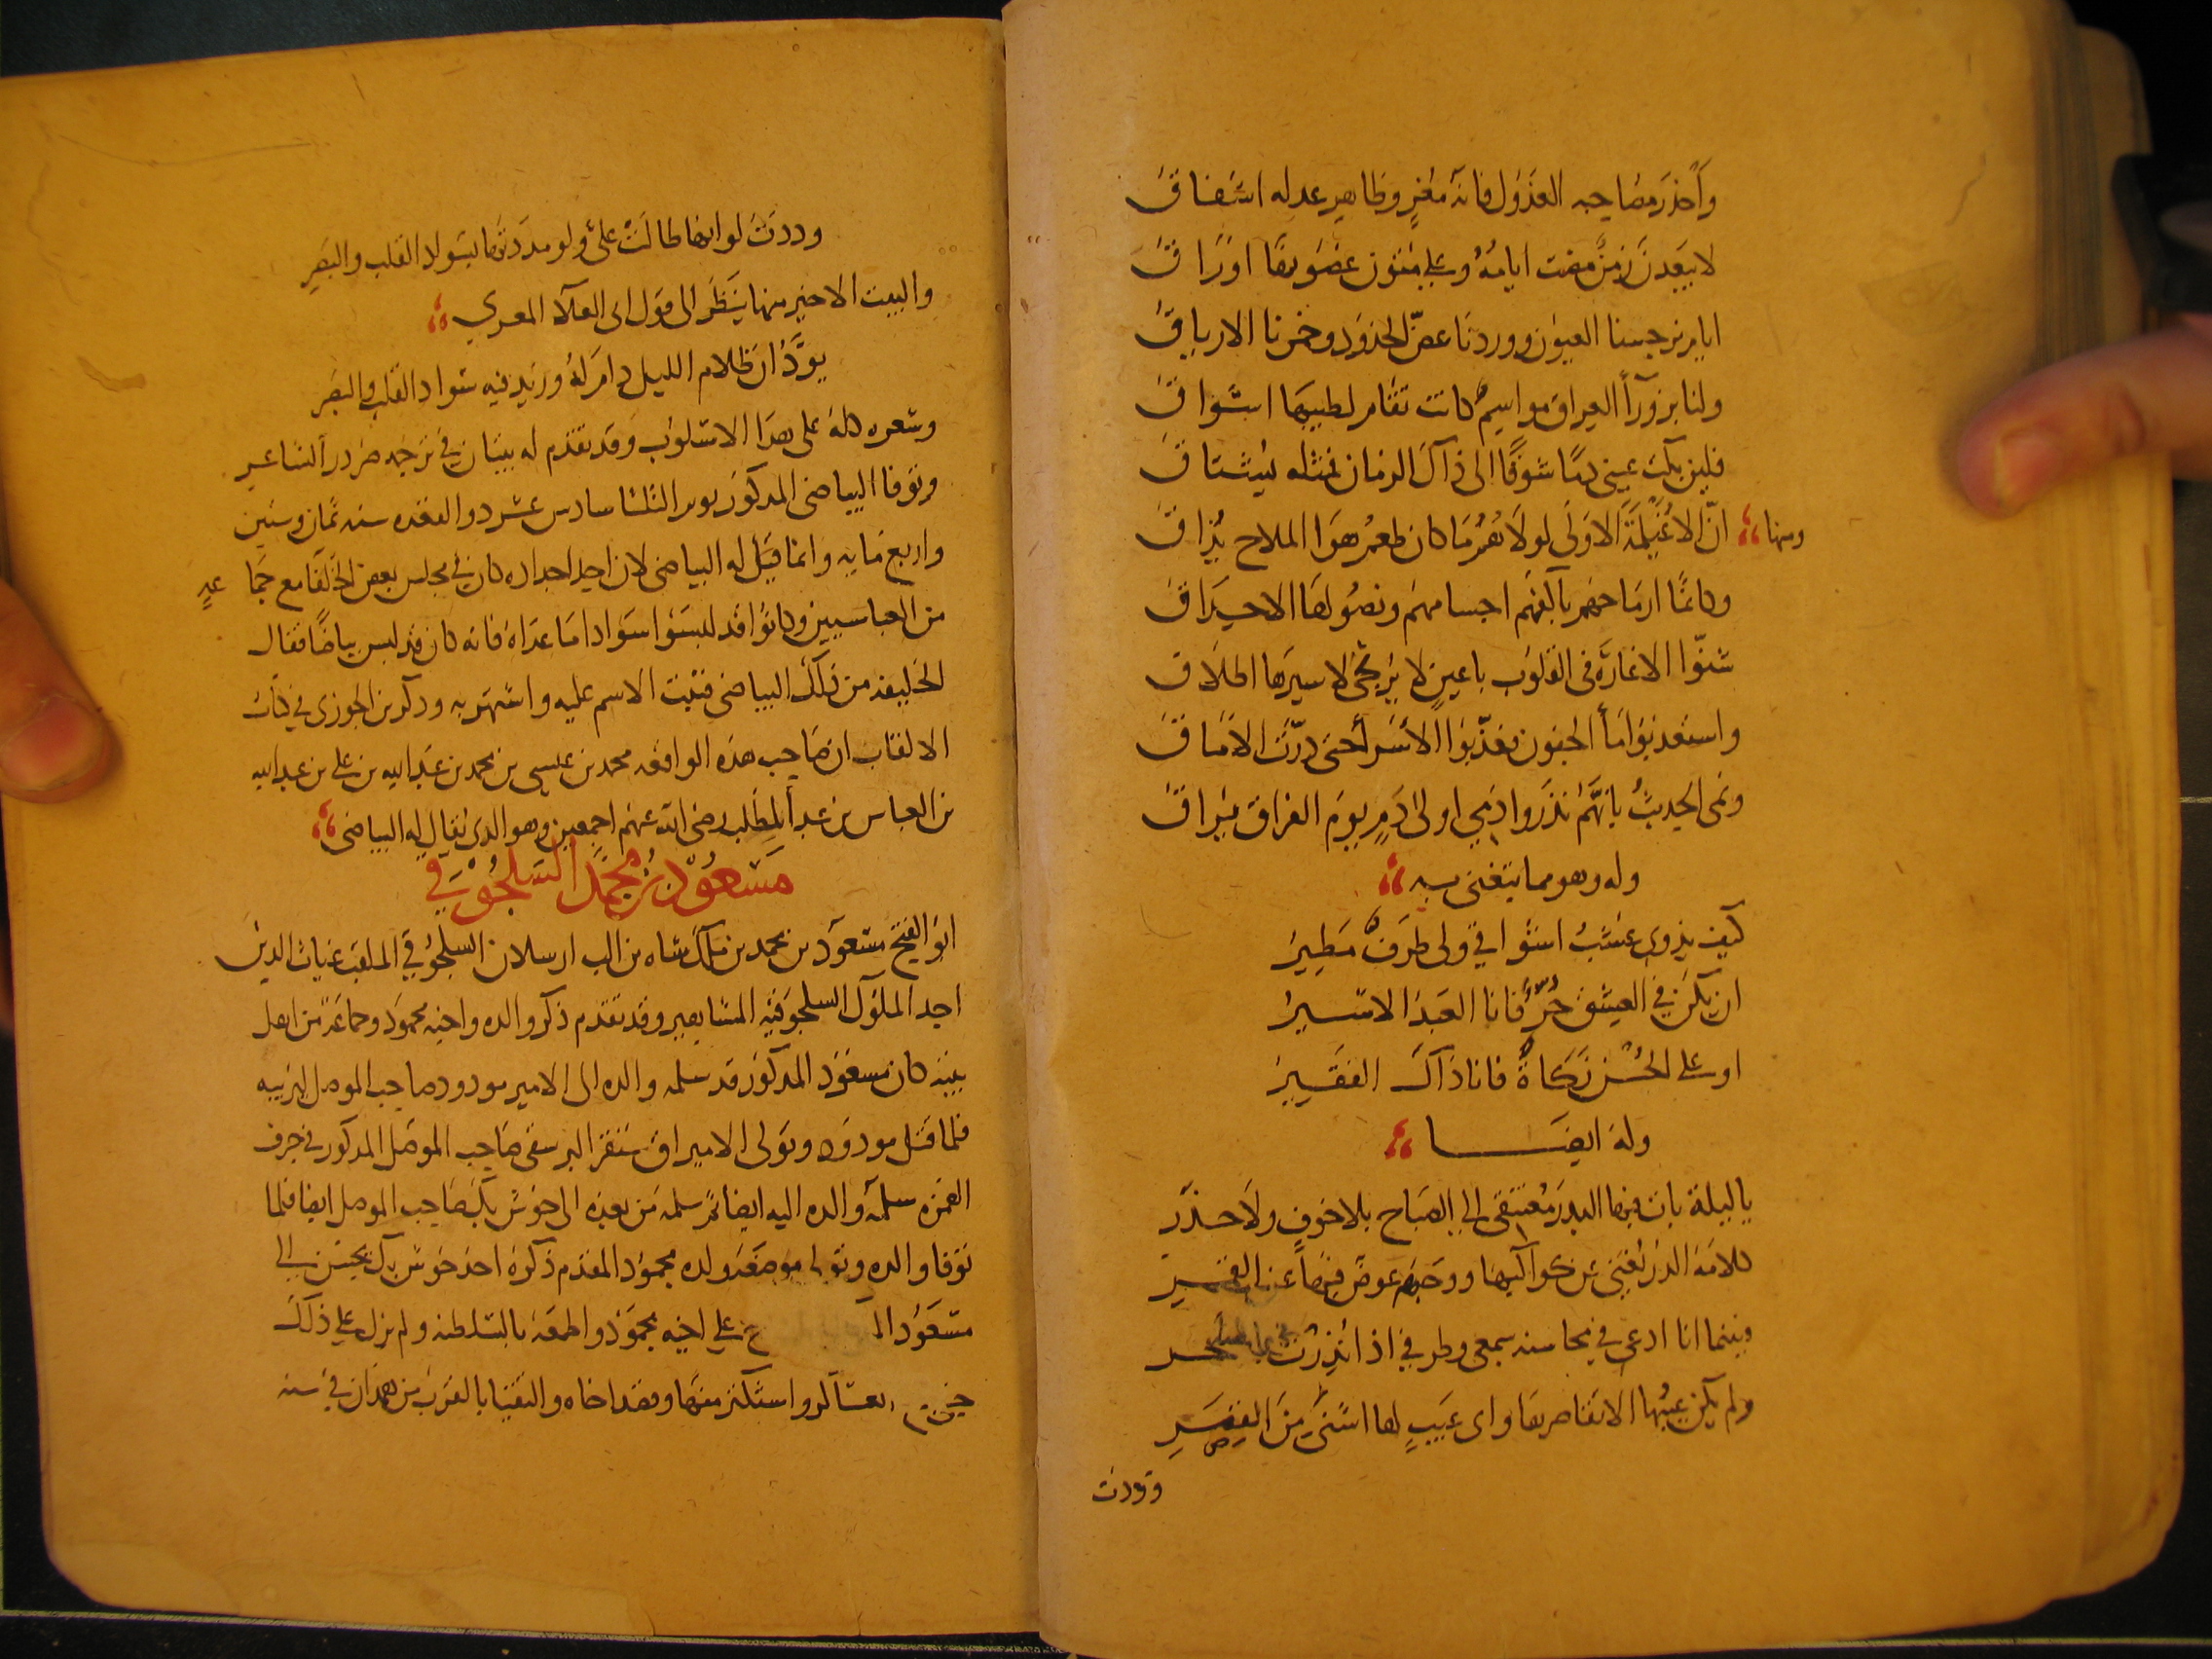 واحذر مصاحبه العذول فانه مغر وظاهر عدله اشفاق
لا يبعدن زمن مضت ايامه وعلى متون غصونها اوراق
ايام نرجسنا العيون ووردنا غض الخدود وخمرنا الارياق
ولنا بزورآ العراق مواسم كانت تقام لطيبها اسواق
فلين بكت عيني دما شوقا الى ذاك الزمان فمثله يشتاق
ومنها ان الاغيلمة الاولى لولاهم ما كان طعم هوا الملاح يذاق
وكانما ارماحهم باكفهم اجسامهم ونصولها الاحداق
شنوا الاغارة في القلوب باعين لا يرتجى لاسيرها اطلاق
واستعذبوا مآ الجفون فعذبوا الاسرآ حتى درت الاماق
ونمى الحديث بانهم نذروا دمي اولى دم يوم الفراق يراق
وله وهو مما يتغنى به
كيف يذوى عشب اشواقي ولى طرف مطير
ان يكن في العشق حر فانا العبد الاسير
او على الحسن زكاة فانا ذاك الفقير
وله ايضا
ياليلة بات فيها البدر معتنقى الى الصباح بلا خوف ولا حذر
كلامه الدر يغني عن كواكبها ووجهه عوض فيها عن القمر
وبينما انا ادعى في محاسنه سمعى وطرفي اذ انذرت بالسحر
ولم يكن عيبها الا تقاصرها واى عيب لها اشنى من القصر
وودت
وددت لو انها طالت على ولو مددتها بسواد القلب والبصر
والبيت الاخير منها ينظر الى قول ابى العلآ المعري
يود ان ظلام الليل دام له وزيد فيه سواد القلب والبصر
وشعره كله على هذا الاسلوب وقد تقدم له بيتان في ترجمه صردر الشاعر
وتوفا البياضى المذكور يوم الثلثا سادس عشر ذو القعده سنه ثمان وستين
واربع مايه وانما قيل له البياضى لان احد اجداده كان في مجلس بعض الخلفا مع جما عه
من العباسيين وكانوا قد لبسوا سوادا ما عداه فانه كان قد لبس بياضا فقال
الخليفه من ذلك البياضى فثبت الاسم عليه واشتهر به وذكر بن الجوزى في كتاب
الالقاب ان صاحب هذه الواقعه محمد بن عيسى بن محمد بن عبد الله بن على بن عبد الله
بن العباس بن عبد المطلب رضى الله عنهم اجمعين وهو الذى يقال له البياضى
مسعود بن محمد السلجوقي
ابو الفتح مسعود بن محمد بن ملك شاه بن الب ارسلان السلجوقي الملقب غياث الدين
احد الملوك السلجوقيه المشاهير وقد تقدم ذكر والده واخيه محمود وجماعة من اهل
بيته كان مسعود المذكور قد سلمه والده الى الامير مودود صاحب الموصل ليربيه
فلما قتل مودود وتولى الامير اق سنقر البرسقى صاحب الموصل المذكور في حرف
الهمزه سلمه والده اليه ايضا ثم سلمه من بعده الى جوش بك صاحب الموصل ايضا فلما
توفا والده وتولى موضعه ولده محمود المقدم ذكره اخذ جوش بك يحسن الى
مسعود الـ ج على اخيه محمود واطمعه بالسلطنه ولم يزل على ذلك
العساكر واستكثر منها وقصد اخاه والتقيا بالقرب من همدان في سنه